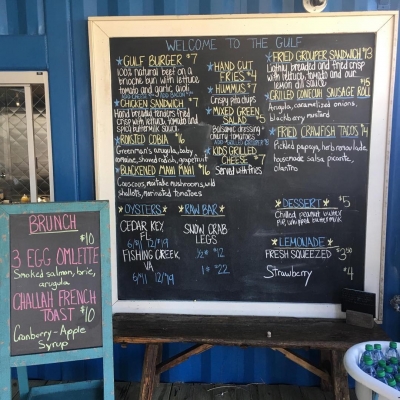 WELCOME TO THE GULF
GULF BURGER $7
100% natural beef on a
brioche bun with lettuce
tomato and garlic aioli
CHICKEN SANDWICH $7
Hand breaded tenders fried
crisp with lettuce, tomato and
spicy buttermilk sauce
ROASTED COBIA $6
Greenman's arugula, baby
romaine, shaved radish, grapefruit
BLACKENED MAHI MAHI $6
Couscous, maitake mushrooms, wild
shallots, marinated tomatoes
HAND CUT
FRIES $4
HUMMUS $7
Crispy pita chips
MIXED GREEN
SALAD $5
Balsamic dressing
cherry tomatoes
KIDS GRILLED
CHEESE $7
Served with fries
FRIED GROUPER SANDWICH $13
Lightly breaded and fried crisp
with lettuce, tomato and our
lemon dill sauce
GRILLED CONECUH SAUSAGE ROLL $5
Arugula, caramelized onions,
blackberry mustard
FRIED CRAWFISH TACOS $4
Pickled papaya, herb remoulade,
housemade salsa picante,
cilantro
OYSTERS
CEDAR KEY,
FL
6/11 12/19
FISHING CREEK,
VA
6/11 12/19
RAW BAR
SNOW CRAB
LEGS
1/2# $12
1# $22
DESSERT $5
Chilled peanut butter
pie, whipped buttermilk
LEMONADE
FRESH SQUEEZED $3.50
Strawberry $4
BRUNCH
$10
3 EGG OMLETTE
Smoked salmon, brie,
arugula
CHALLAH FRENCH
TOAST $10
Cranberry-Apple
Syrup